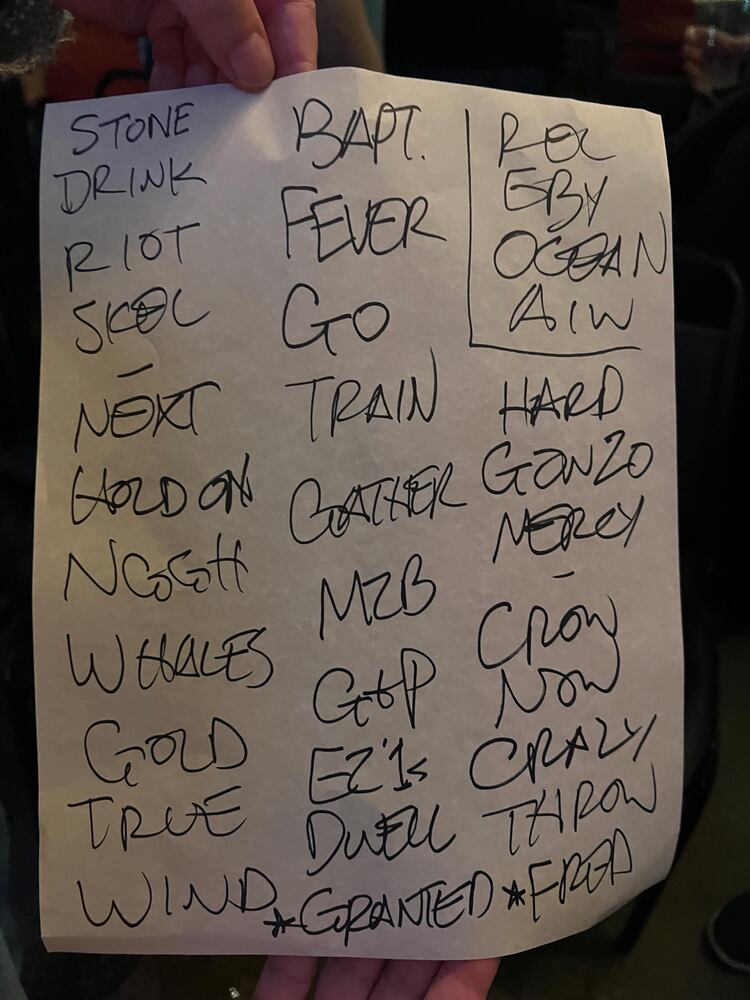 STONE
DRINK
RIOT
SKOL
–
NEXT
HOLD ON
NGGH
WHALES
GOLD
TRUE
WIND
BAPT.
FEVER
GO
TRAIN
GATHER
MZB
G+P
EZ'1s
DWELL
*GRANTED
ROL
GBY
OCEAN
AIW
HARD
GONZO
MERCY
–
CROW
NOW
CRAZY
THROW
*FRED